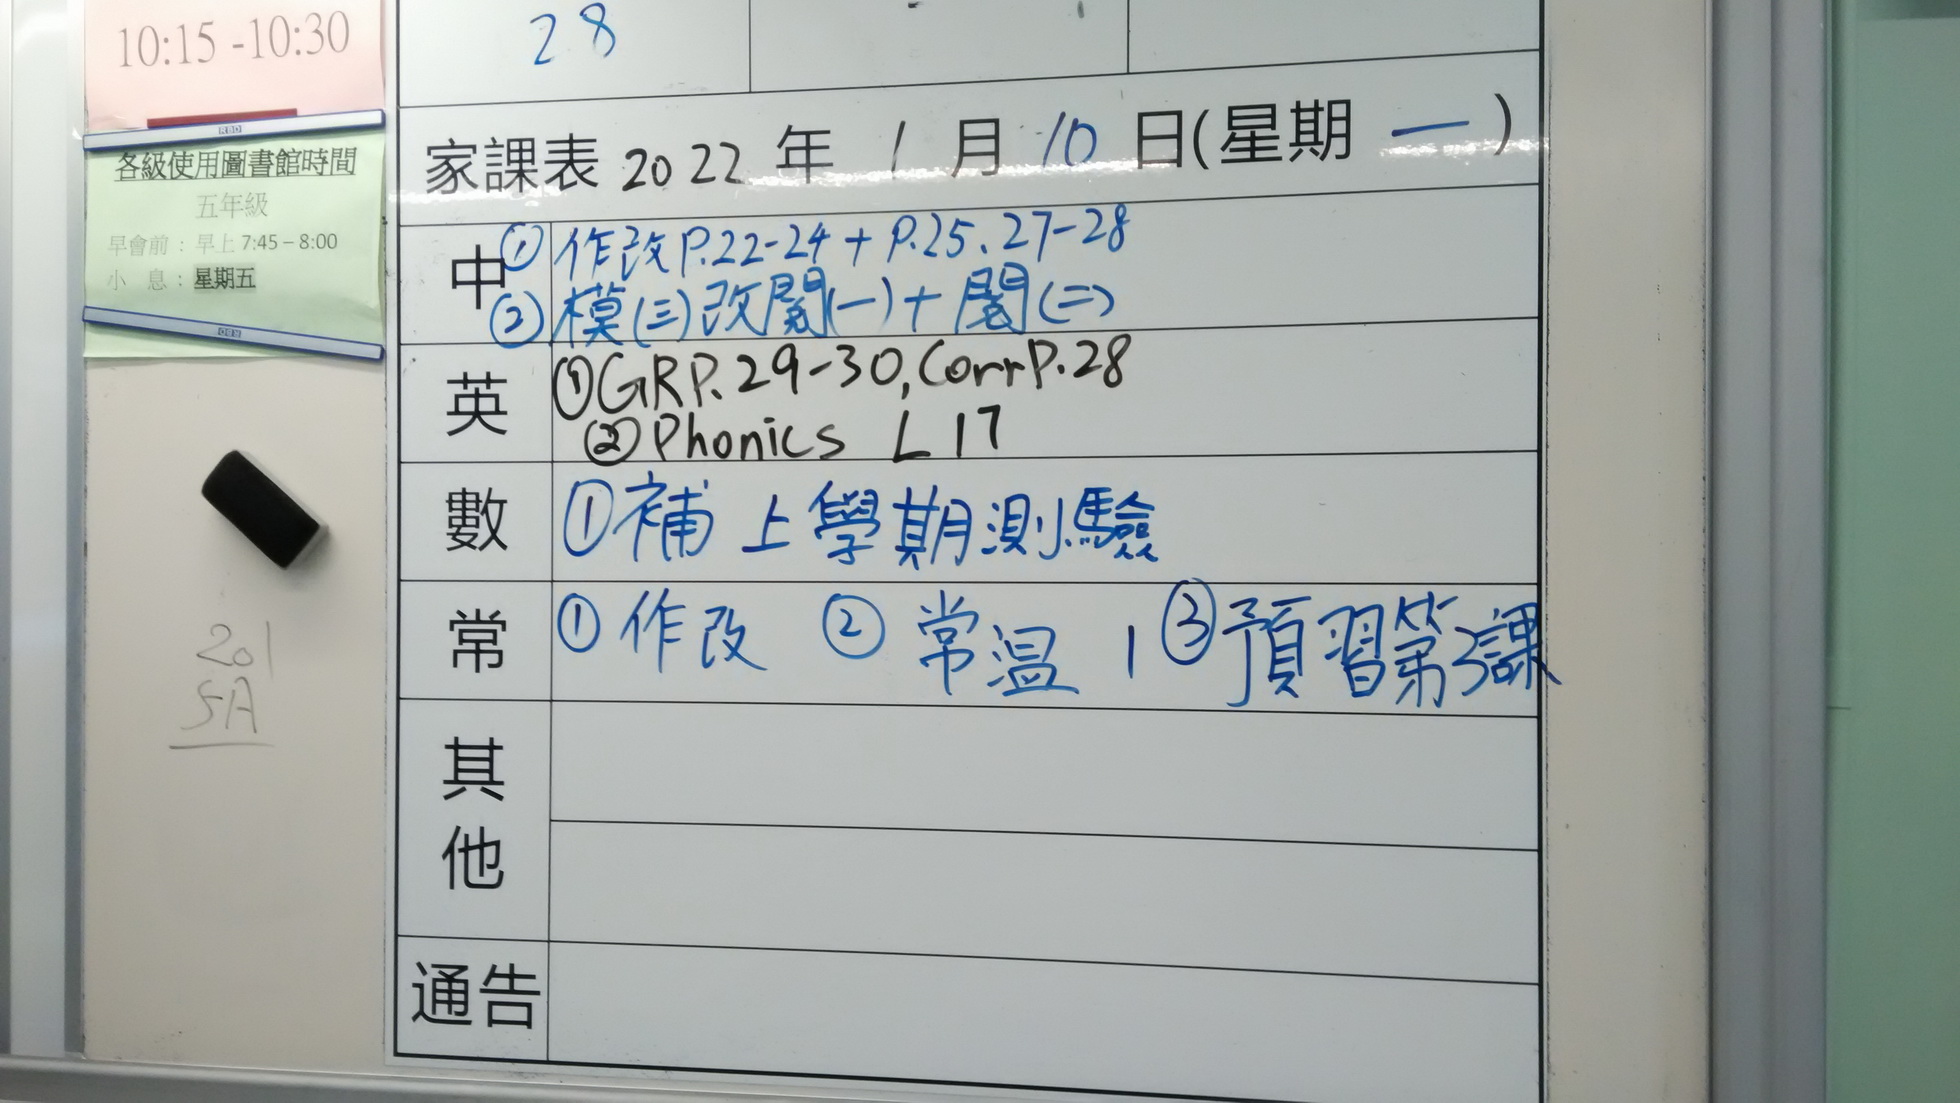 10:15 -10:30
28
各級使用圖書館時間
五年級
早會前：早上 7:45 – 8:00
小 息：星期五
家課表 2022 年 1 月 10 日(星期 一)
中 ① 作改 P.22-24 + P.25、27-28
② 模(三)改閱(一)+閱(二)
英 ①GRP.29-30, Corr P.28
②Phonics L 17
數 ①補上學期測驗
常 ① 作改 ② 常温 1 ③預習第3課
其他
通告
201
5A